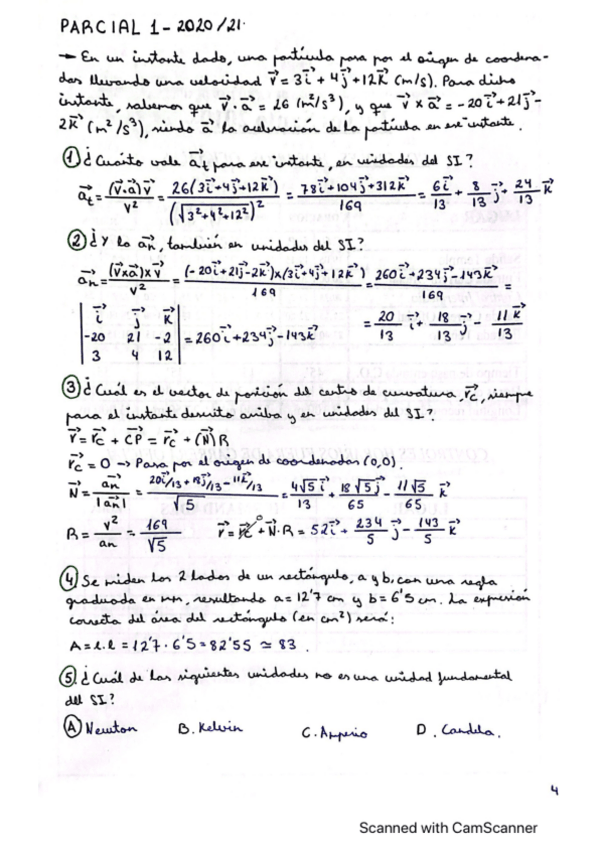 PARCIAL 1 - 2020/21.
→ En un instante dado, una partícula pasa por el origen de coordena-
das llevando una velocidad v⃗ = 3i⃗ + 4j⃗ + 12k⃗ (m/s). Para dicho
instante, sabemos que v⃗ · a⃗ = 26 (m²/s³), y que v⃗ x a⃗ = -20i⃗ + 21j⃗ -
2k⃗ (m²/s³), siendo a⃗ la aceleración de la partícula en ese instante.
① ¿Cuánto vale a⃗t para ese instante, en unidades del SI?
a⃗t = (v⃗·a⃗)v⃗ / v² = 26(3i⃗+4j⃗+12k⃗) / (√3²+4²+12²)² = 78i⃗+104j⃗+312k⃗ / 169 = 6i⃗/13 + 8/13 j⃗ + 24/13 k⃗
② ¿Y la a⃗n, también en unidades del SI?
a⃗n = (v⃗xa⃗)xv⃗ / v² = (-20i⃗+21j⃗-2k⃗)x(3i⃗+4j⃗+12k⃗) / 169 = 260i⃗+234j⃗-143k⃗ / 169 =
| i⃗ j⃗ k⃗ |
| -20 21 -2 | = 260i⃗+234j⃗-143k⃗ = 20/13 i⃗ + 18/13 j⃗ - 11/13 k⃗
| 3 4 12 |
③ ¿Cuál es el vector de posición del centro de curvatura, r⃗c, siempre
para el instante descrito arriba y en unidades del SI?
r⃗ = r⃗c + CP⃗ = r⃗c + (N⃗) R
r⃗c = 0 → Pasa por el origen de coordenadas (0,0).
N⃗ = a⃗n / |a⃗n| = 20i⃗/13 + 18j⃗/13 - 11k⃗/13 / √5 = 4√5 i⃗ / 13 + 18√5 j⃗ / 65 - 11√5 / 65 k⃗
R = v² / an = 169 / √5 r⃗ = r⃗c⁰ + N⃗·R = 52i⃗ + 234/5 j⃗ - 143/5 k⃗
④ Se miden los 2 lados de un rectángulo, a y b, con una regla
graduada en mm, resultando a = 12'7 cm y b = 6'5 cm. La expresión
correcta del área del rectángulo (en cm²) será:
A = l.l = 12'7 · 6'5 = 82'55 ≃ 83.
⑤ ¿Cuál de las siguientes unidades no es una unidad fundamental
del SI?
Ⓐ Newton B. Kelvin C. Amperio D. Candela.
4
Scanned with CamScanner